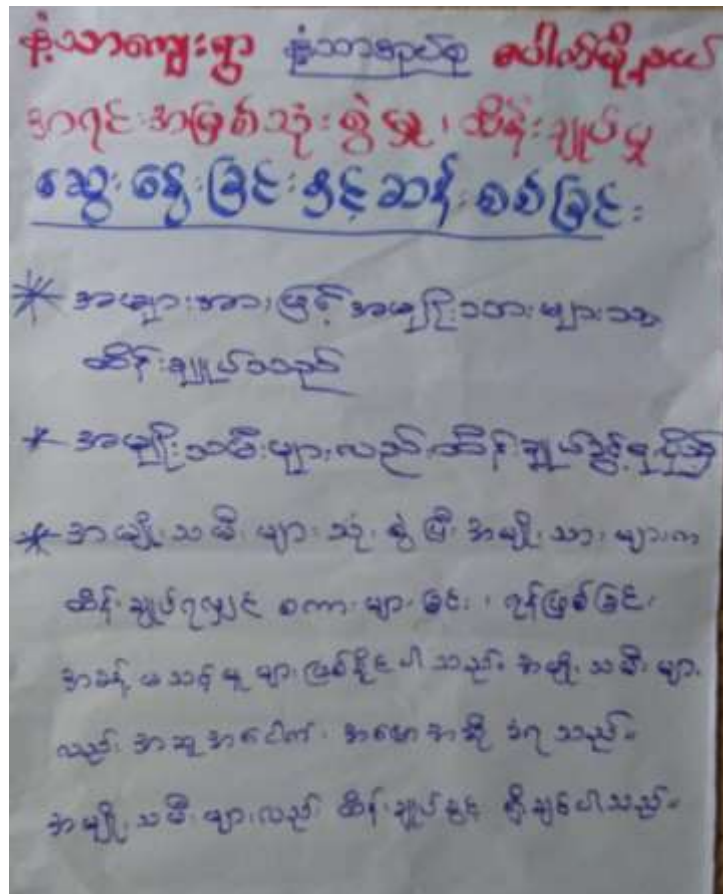 နံ့သာကျေးရွာ နံ့သာအုပ်စု ပေါက်မြို့နယ်
အရင်းအမြစ်သုံးစွဲမှု၊ ထိန်းချုပ်မှု
ဆွေးနွေးခြင်းနှင့်ဆန်းစစ်ခြင်း
* အများအားဖြင့် အမျိုးသားများသာ
ထိန်းချုပ်သည်
* အမျိုးသမီးများလည်း ထိန်းချုပ်ခွင့်ရှိ
* အမျိုးသမီးများသုံးစွဲပြီး အမျိုးသားများက
ထိန်းချုပ်ရလျှင် စကားများခြင်း၊ ရန်ဖြစ်ခြင်း
အခန့်မသင့်မှုများဖြစ်နိုင်ပါသည်။ အမျိုးသမီးများ
လည်း အဆူအငေါက် အမောအဆို ခံရသည်။
အမျိုးသမီးများလည်း ထိန်းချုပ်ခွင့် ရှိချင်ပါသည်။